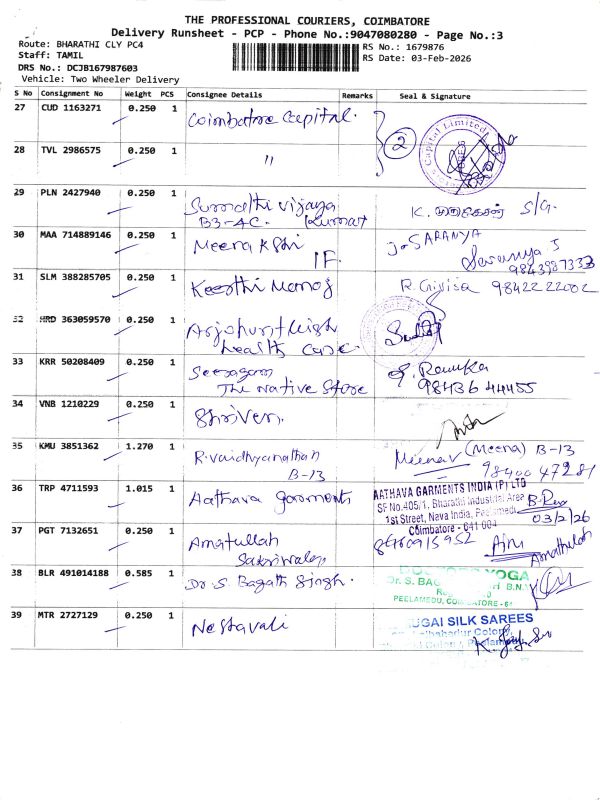 THE PROFESSIONAL COURIERS, COIMBATORE
Delivery Runsheet - PCP - Phone No.:9047080280 - Page No.:3
Route: BHARATHI CLY PC4
RS No.: 1679876
Staff: TAMIL
RS Date: 03-Feb-2026
DRS No.: DCJB167987603
Vehicle: Two Wheeler Delivery
S No Consignment No Weight PCS Consignee Details Remarks Seal & Signature
27 CUD 1163271 0.250 1 Coimbatore Capital. 2 Capital Limited
28 TVL 2986575 0.250 1 "
29 PLN 2427940 0.250 1 Sumathi Vijaya Kumar
B3-4C. K. S/G.
30 MAA 714889146 0.250 1 Meenakshi J. SARANYA
1F. Saranya J
9843987333
31 SLM 388285705 0.250 1 Keerthi Manoj R. Girija 9842222002
32 HRD 363059570 0.250 1
health care.
33 KRR 50208409 0.250 1 Seeragam Renuka
The Native Store 98436 44455
34 VNB 1210229 0.250 1 Shriven.
35 KMU 3851362 1.270 1 R. Vaidhyanathan (Meena) B-13
B-13 98400 47281
36 TRP 4711593 1.015 1 Aathava garments AATHAVA GARMENTS INDIA (P) LTD
SF No.405/1, Bharathi Industrial Area
1st Street, Nava India, Peelamedu
Coimbatore - 641 004
03/2/26
37 PGT 7132651 0.250 1 Amatullah 8760915952
Amathulah
38 BLR 491014188 0.585 1 Dr. S. Bagath Singh. YOGA
Dr. S. B.N.
PEELAMEDU, COIMBATORE - 6
39 MTR 2727129 0.250 1 Nestavali SILK SAREES
Colony,